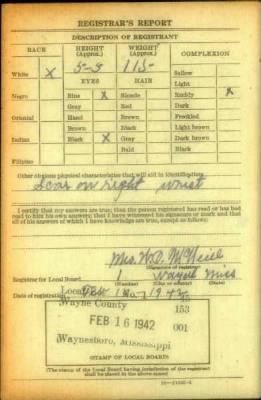 REGISTRAR'S REPORT
DESCRIPTION OF REGISTRANT
RACE HEIGHT (Approx.) WEIGHT (Approx.) COMPLEXION
White X 5-5 115- Sallow
EYES HAIR Light
Negro Blue X Blonde Ruddy X
Gray Red Dark
Oriental Hazel Brown Freckled
Brown Black Light brown
Indian X Black X Gray Dark brown
Bald Black
Filipino
Other obvious physical characteristics that will aid in identification
Scar on right wrist
I certify that my answers are true; that the person registered has read or has had
read to him his own answers; that I have witnessed his signature or mark and that
all of his answers of which I have knowledge are true, except as follows:
Mrs. W.D. McNeill
(Signature of registrar)
Registrar for Local Board 1 Wayne Miss
(Number) (City or county) (State)
Date of registration Feb 16 1942
Local Board No. 1
Wayne County 153
FEB 16 1942 001
Waynesboro, Mississippi
(STAMP OF LOCAL BOARD)
(The stamp of the Local Board having jurisdiction of the registrant
shall be placed in the above space)